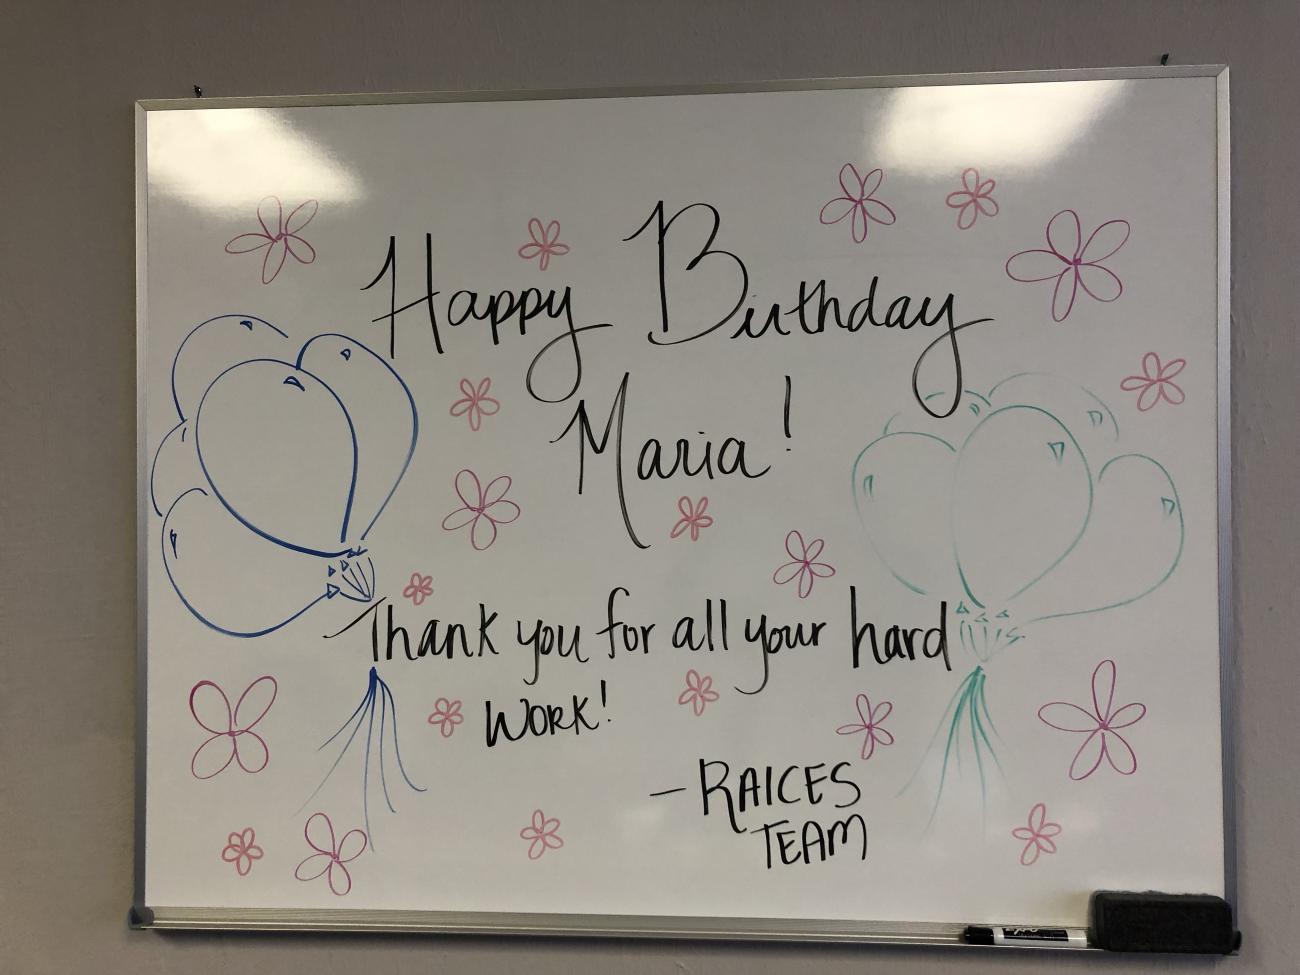 Happy Birthday
Maria!
Thank you for all your hard
WORK!
- RAICES
TEAM